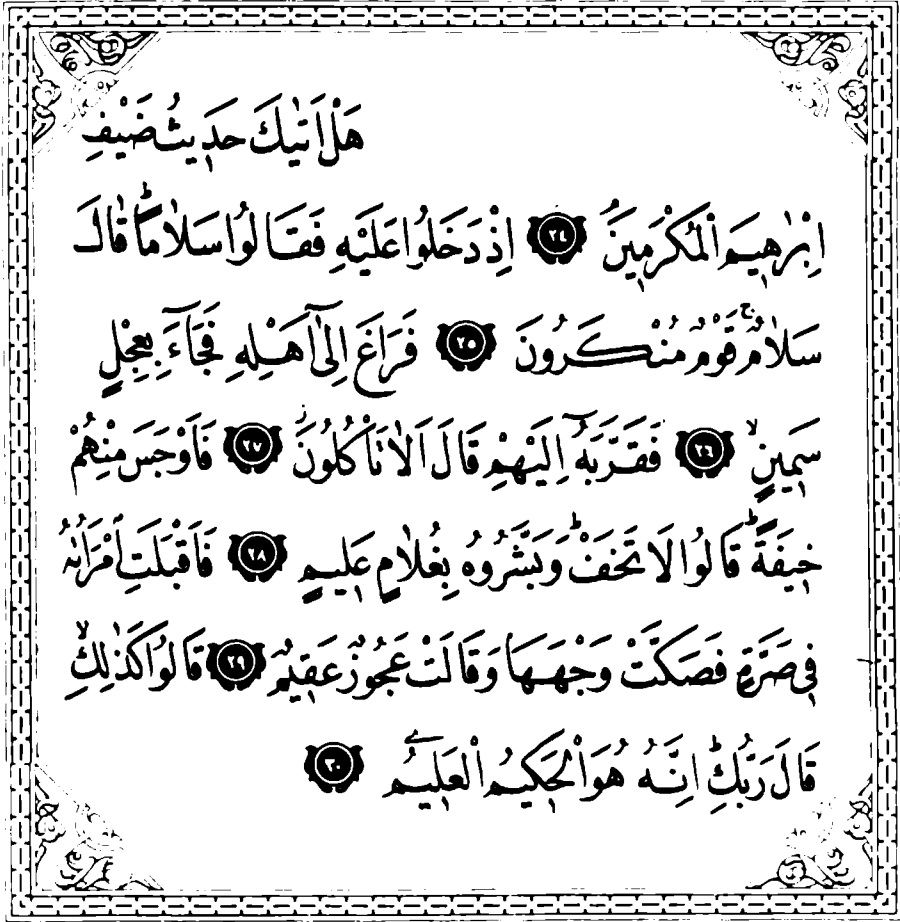 هَلْ اَتٰيكَ حَد۪يثُ ضَيْفِ
اِبْرٰه۪يمَ الْمُكْرَم۪ينَۢ ﴿٢٤﴾ اِذْ دَخَلُوا عَلَيْهِ فَقَالُوا سَلَامًاۜ قَالَ
سَلَامٌۚ قَوْمٌ مُنْكَرُونَ ﴿٢٥﴾ فَرَاغَ اِلٰٓى اَهْلِه۪ فَجَٓاءَ بِعِجْلٍ
سَم۪ينٍۙ ﴿٢٦﴾ فَقَرَّبَهُٓ اِلَيْهِمْ قَالَ اَلَا تَأْكُلُونَۘ ﴿٢٧﴾ فَاَوْجَسَ مِنْهُمْ
خ۪يفَةًۜ قَالُوا لَا تَخَفْۜ وَبَشَّرُوهُ بِغُلَامٍ عَل۪يمٍ ﴿٢٨﴾ فَاَقْبَلَتِ امْرَاَتُهُ
ف۪ي صَرَّةٍ فَصَكَّتْ وَجْهَهَا وَقَالَتْ عَجُوزٌ عَق۪يمٌ ﴿٢٩﴾ قَالُوا كَذٰلِكِۙ
قَالَ رَبُّكِۜ اِنَّهُ هُوَ الْحَك۪يمُ الْعَل۪يمُ ﴿٣٠﴾